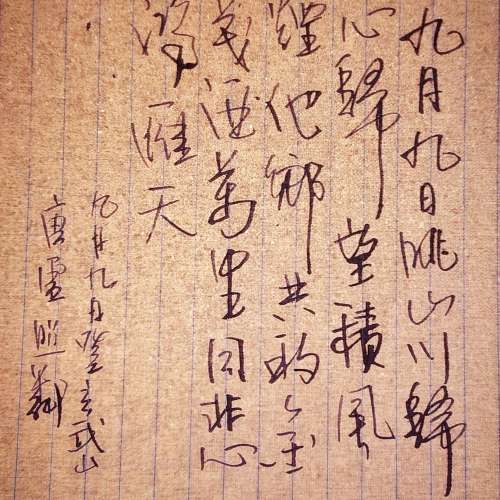 九月九日眺山川歸
心歸望積風
煙他鄉共酌金
花酒萬里同悲
鴻雁天
九月九日登玄武山
唐盧照鄰